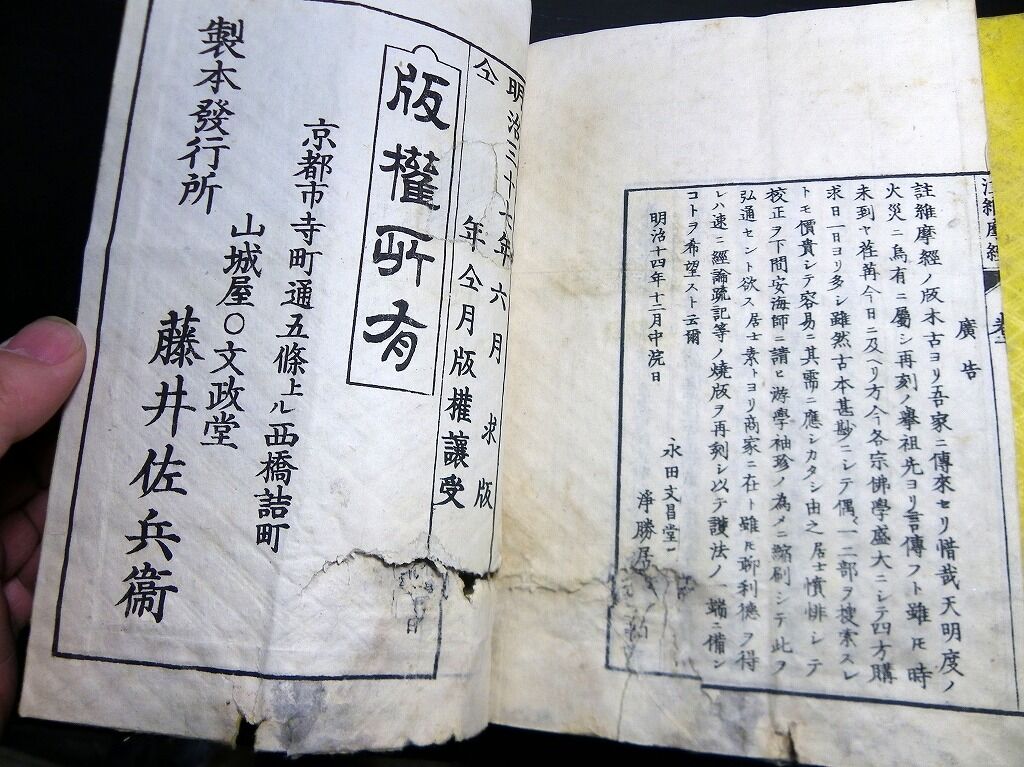 廣告
註維摩經ノ版木古ヨリ吾家ニ傳來セリ惜哉天明度ノ
火災ニ烏有ニ屬シ再刻ノ擧祖先ヨリ言傳フト雖𪜈時
未到ヤ荏苒今日ニ及ヘリ方今各宗佛學盛大ニシテ四方購
求日一日ヨリ多シ雖然古本甚尠ニシテ偶〻一二部ヲ搜索スレ
トモ價貴シテ容易ニ其需ニ應シカタシ由之居士憤悱シテ
校正ヲ下間安海師ニ請ヒ游學袖珍ノ為メニ縮刷シテ此ヲ
弘通セント欲ス居士素トヨリ商家ニ在ト雖𪜈聊利德ヲ得
レハ速ニ經論疏記等ノ燒版ヲ再刻シ以テ護法ノ一端ニ備ン
コトヲ希望スト云爾
明治十四年十二月中院日
永田文昌堂
淨勝居
明治三十七年六月求版
仝年仝月版權讓受
版權所有
京都市寺町通五條上ル西橋詰町
山城屋〇文政堂
製本發行所
藤井佐兵衞